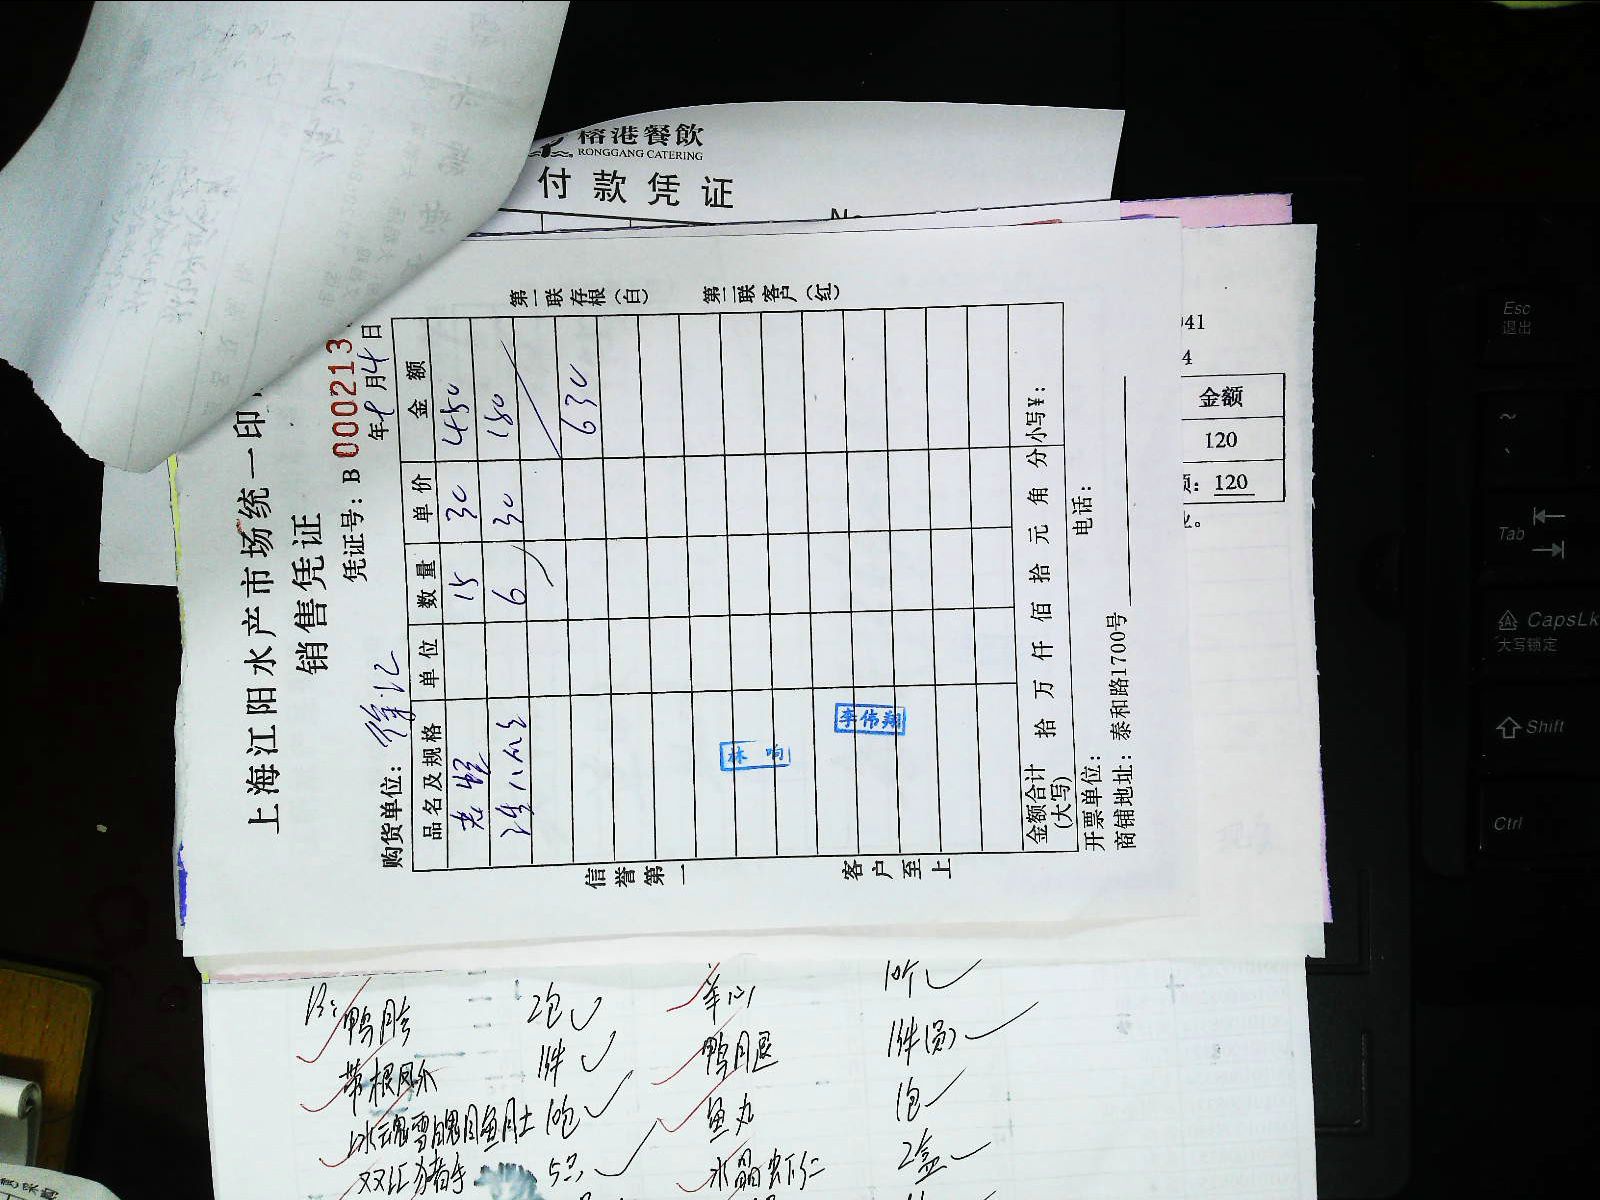 榕港餐飲
RONGGANG CATERING
付款凭证
上海江阳水产市场统一印
销售凭证
凭证号：B 000213
年 月4日
购货单位：徐汇
品名及规格 单位 数量 单价 金额
15 30 450
6 30 180
630
金额合计(大写) 拾 万 仟 佰 拾 元 角 分 小写¥：
开票单位： 电话：
商铺地址：泰和路1700号
第一联存根（白） 第二联客户（红）
信誉第一 客户至上
李伟翔
林
041
4
金额
120
120
鸭胗 2包 羊心 10个
带根凤爪 1件 鸭腿 1件(员)
10包 鱼丸 1包
双汇猪手 5只 水晶虾仁 2盒
Esc
退出
~
Tab
CapsLk
大写锁定
Shift
Ctrl